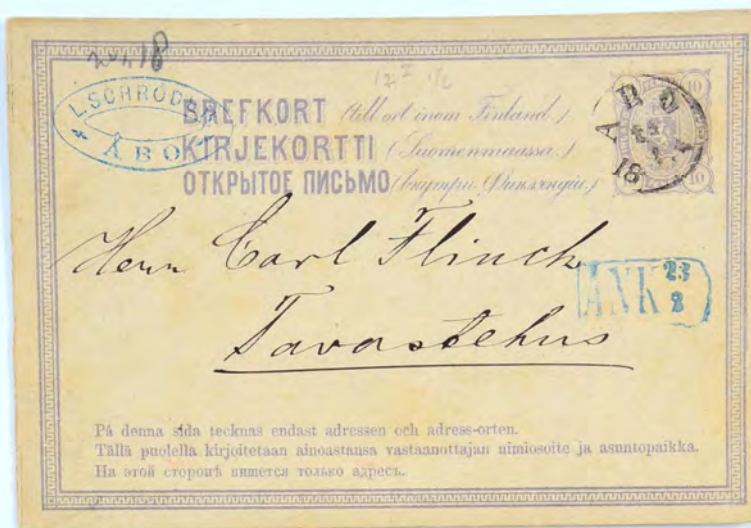 L. SCHRÖDER
ÅBO
BREFKORT (till ort inom Finland.)
KIRJEKORTTI (Suomenmaassa.)
ОТКРЫТОЕ ПИСЬМО (внутри Финляндіи.)
10 10
10 10
ÅBO
18
Herr Carl Flinck
ANK 23
8
Tavastehus
På denna sida tecknas endast adressen och adress-orten.
Tällä puolella kirjoitetaan ainoastansa vastaanottajan nimiosoite ja asuntopaikka.
На этой сторонѣ пишется только адресъ.